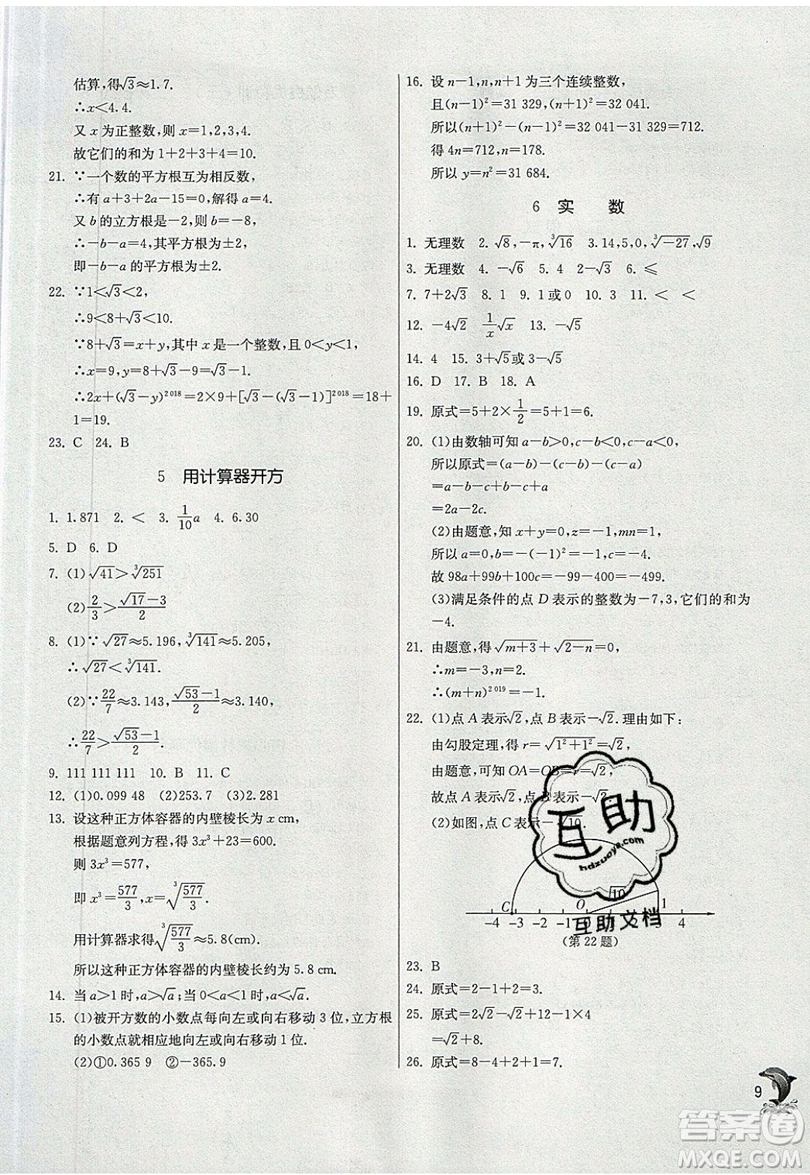 估算,得√3≈1.7.
∴x<4.4.
又 x 为正整数,则 x=1,2,3,4.
故它们的和为 1+2+3+4=10.
21. ∵一个数的平方根互为相反数,
∴有 a+3+2a-15=0,解得 a=4.
又 b 的立方根是-2,则 b=-8,
∴-b-a=4,其平方根为±2,
即-b-a 的平方根为±2.
22. ∵1<√3<2,
∴9<8+√3<10.
∵8+√3=x+y,其中 x 是一个整数,且 0<y<1,
∴x=9,y=8+√3-9=√3-1,
∴2x+(√3-y)²⁰¹⁸=2×9+[√3-(√3-1)]²⁰¹⁸=18+
1=19.
23. C 24. B
5 用计算器开方
1. 1.871 2. < 3. 1/10 a 4. 6.30
5. D 6. D
7. (1)√41>∛251
(2)2/3>(√17-3)/2
8. (1)∵√27≈5.196,∛141≈5.205,
∴√27<∛141.
(2)∵22/7≈3.143,(√53-1)/2≈3.140,
∴22/7>(√53-1)/2.
9. 111 111 111 10. B 11. C
12. (1)0.099 48 (2)253.7 (3)2.281
13. 设这种正方体容器的内壁棱长为 x cm,
根据题意列方程,得 3x³+23=600.
则 3x³=577,
即 x³=577/3,x=∛(577/3).
用计算器求得∛(577/3)≈5.8(cm).
所以这种正方体容器的内壁棱长约为 5.8 cm.
14. 当 a>1 时,a>√a;当 0<a<1 时,a<√a.
15. (1)被开方数的小数点每向左或向右移动 3 位,立方根
的小数点就相应地向左或向右移动 1 位.
(2)①0.365 9 ②-365.9
16. 设 n-1,n,n+1 为三个连续整数,
且(n-1)²=31 329,(n+1)²=32 041.
所以(n+1)²-(n-1)²=32 041-31 329=712.
得 4n=712,n=178.
所以 y=31 684.
6 实 数
1. 无理数 2. √8,-π,∛16 3.14,5,0,∛-27,√9
3. 无理数 4. -√6 5. 4 6. ≤
7. 7+2√3 8. 1 9. 1或0 10. 3 11. <
12. -4√2 1/x √x 13. -√5
14. 4 15. 3+√5或 3-√5
16. D 17. B 18. A
19. 原式=5+2×1/2=5+1=6.
20. (1)由数轴可知 a-b>0,c-b<0,a-c>0,
所以原式=
=a-b-c+b+a-c
=2a-2c.
(2)由题意,知 x+y=0,z=-1,mn=1,
所以 a=0,b=-(-1)²=-1,c=-4.
故 98a+99b+100c=-99-400=-499.
(3)满足条件的点 D 表示的整数为-7,3,它们的和为
-4.
21. 由题意,得√(m+3)+√(2-n)=0,
∴m=-3,n=2,
∴(m+n)²⁰¹⁹=-1.
22. (1)点 A 表示-√2,点 B 表示√2. 理由如下:
由勾股定理,得 r=√(1²+1²)=√2,
由题意,可知 OA=OB=r=√2,
故点 A 表示-√2,点 B 表示√2.
(2)如图,点 C 表示-√10.
√10
C O 1
-4 -3 -2 -1 4
(第 22 题)
23. B
24. 原式=2-1+2=3.
25. 原式=2√2-√2+12-1×4
=√2+8.
26. 原式=8-4+2+1=7.
互助
hdzuoye.com
互助文档
9
答案圈
MXQE.COM